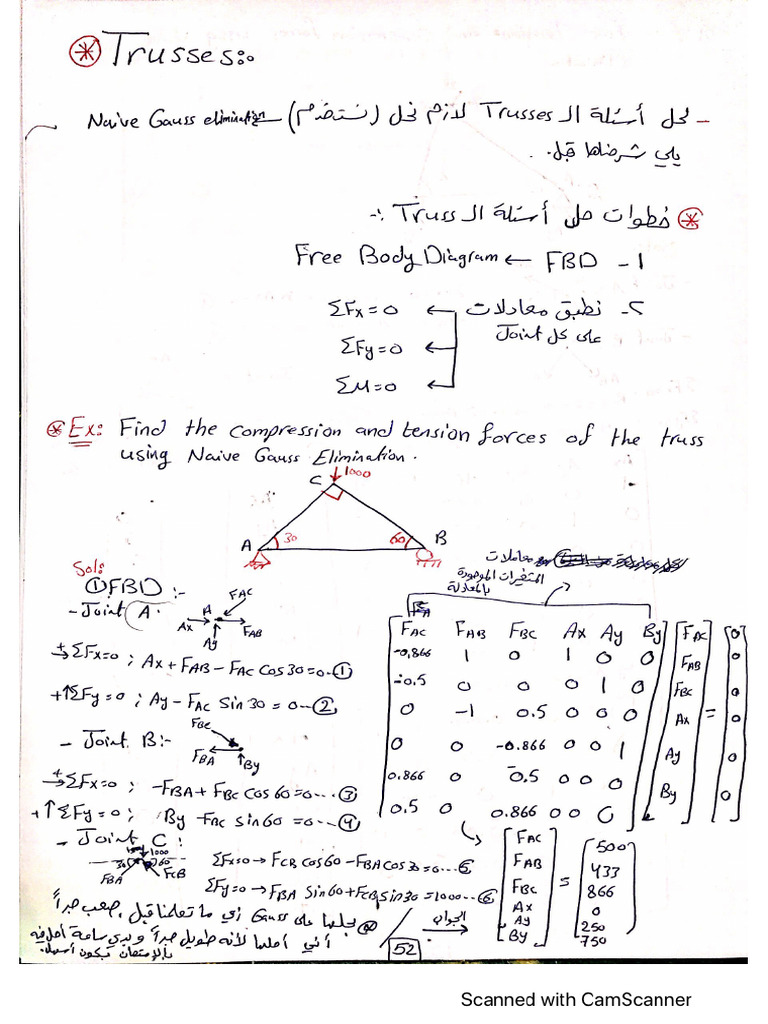 Trusses:
- لحل أسئلة الـ Trusses لازم نحل (نستخدم) Naive Gauss elimination
يلي شرحناها قبل.
خطوات حل أسئلة الـ Truss :-
1- FBD ← Free Body Diagram
2- نطبق معادلات ← ΣFx=0
على كل Joint
← ΣFy=0
← ΣM=0
Ex: Find the compression and tension forces of the truss
using Naive Gauss Elimination.
C 1000
A 30 60 B
Sol:
① FBD :-
- Joint A:
A FAC
Ax FAB
Ay
+→ ΣFx=0 ; Ax + FAB - FAC Cos 30 = 0 --①
+↑ΣFy=0 ; Ay - FAC Sin 30 = 0 --②
- Joint B:-
FBC
FBA By
+→ ΣFx=0 ; -FBA + FBC Cos 60 = 0 ... ③
+↑ΣFy=0 ; By - FAC sin 60 = 0 ... ④
- Joint C:
1000
30 60
FBA FCB
ΣFx=0 → FCB Cos60 - FBA Cos 30 = 0 ... ⑤
ΣFy=0 → FBA Sin60 + FCB Sin30 = 1000 ... ⑥
معاملات
المتغيرات الموجودة
بالمعادلة
FAC FAB FBC Ax Ay By
-0.866 1 0 1 0 0
-0.5 0 0 0 1 0
0 -1 0.5 0 0 0
0 0 -0.866 0 0 1
0.866 0 -0.5 0 0 0
0.5 0 0.866 0 0 0
FAC
FAB
FBC
Ax
Ay
By
=
0
0
0
0
0
0
الجواب
FAC
FAB
FBC
Ax
Ay
By
=
500
433
866
0
250
750
بحلها على Gauss زي ما تعلمنا قبل، صعب جداً
أني أحلها لأنه طويل جداً وبدي ساعة أحل فيه
بالامتحان بكون أسهل.
52
Scanned with CamScanner